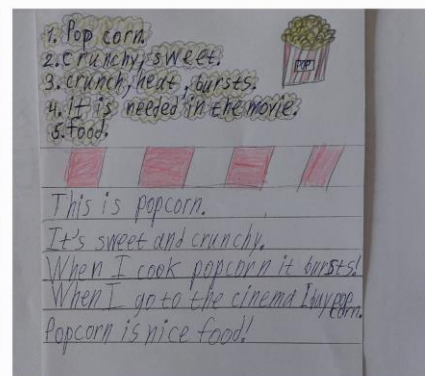 1. Pop corn.
2. crunchy, sweet.
3. crunch, heat, bursts.
4. It is needed in the movie.
5. Food.
POP
This is popcorn.
It's sweet and crunchy.
When I cook popcorn it bursts!
When I go to the cinema I buy pop
corn.
Popcorn is nice food!